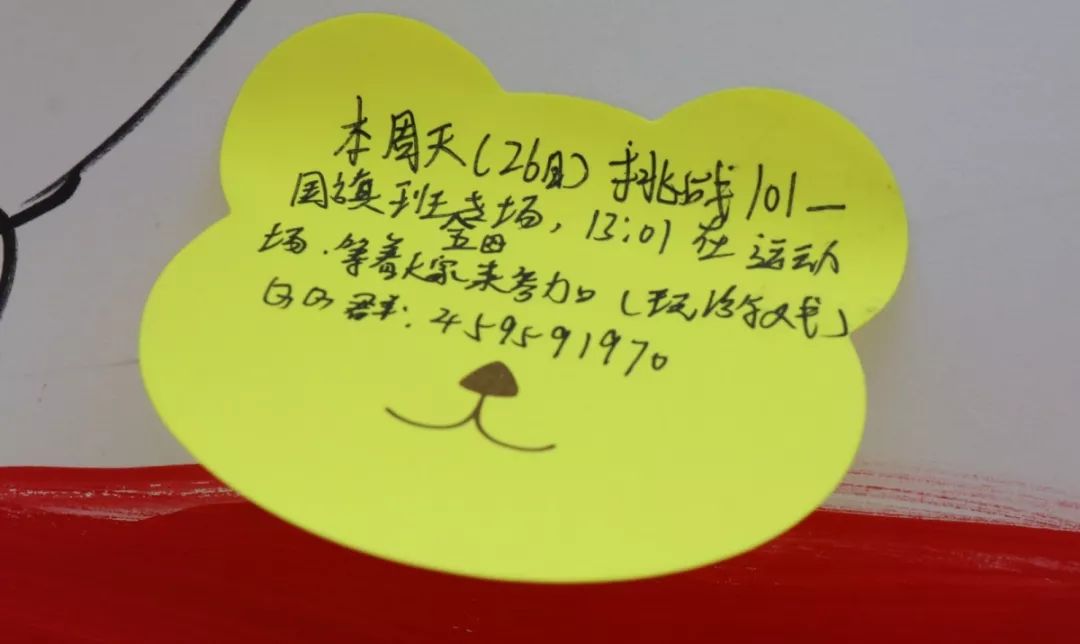 本周天(26日)挑战101—
国旗班专场,13:01在运动
场.等着大家来参加(玩游戏)
QQ群:459591970